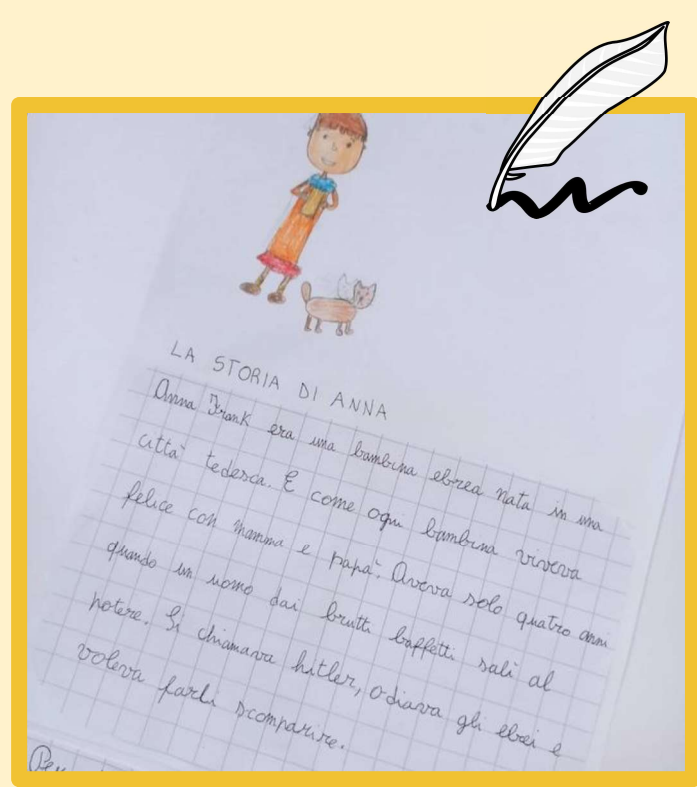 LA STORIA DI ANNA
Anna Frank era una bambina ebrea nata in una
città tedesca. E come ogni bambina viveva
felice con mamma e papà. Aveva solo quatro anni
quando un uomo dai brutti baffetti salì al
potere. Si chiamava hitler, odiava gli ebrei e
voleva farli scomparire.